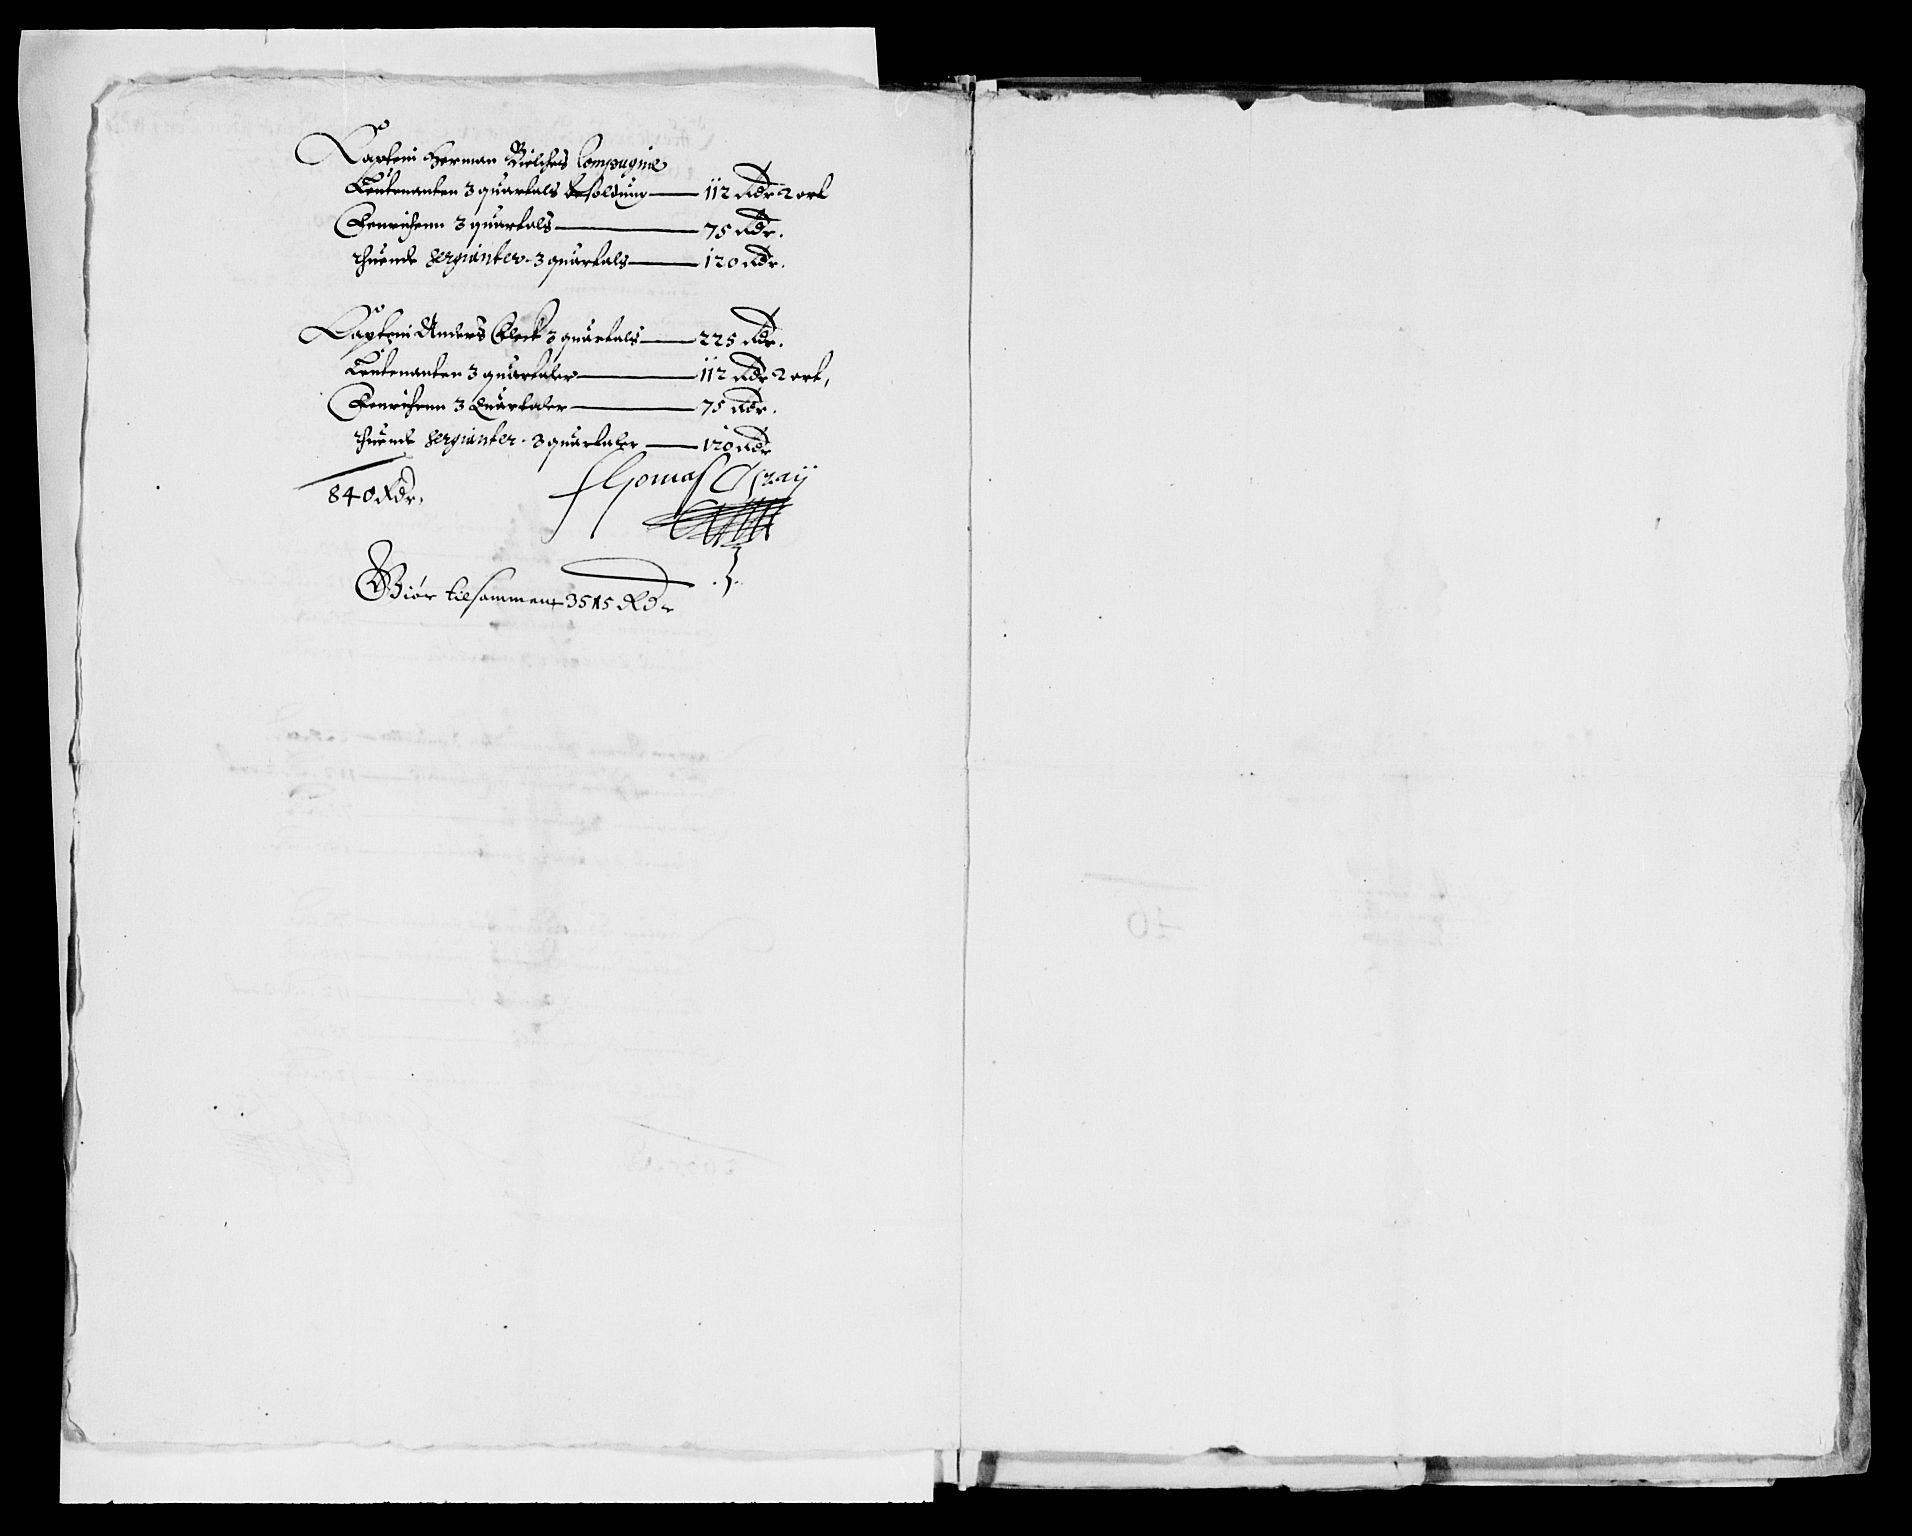 Capten Herman Compagnie
Leutenanten 3 quartals besolding — 112 Rdr 2 ort
Fenrichenn 3 quartals — 75 Rdr.
thuende sergianter 3 quartals — 120 Rdr.
Capten Anders 3 quartals — 225 Rdr.
Leutenanten 3 quartaler — 112 Rdr 2 ort,
Fenrichenn 3 Quartaler — 75 Rdr.
thuende sergianter 3 quartaler — 120 Rdr
840 Rdr.
Thomas Graij
Giør tilsammen 3515 Rdr